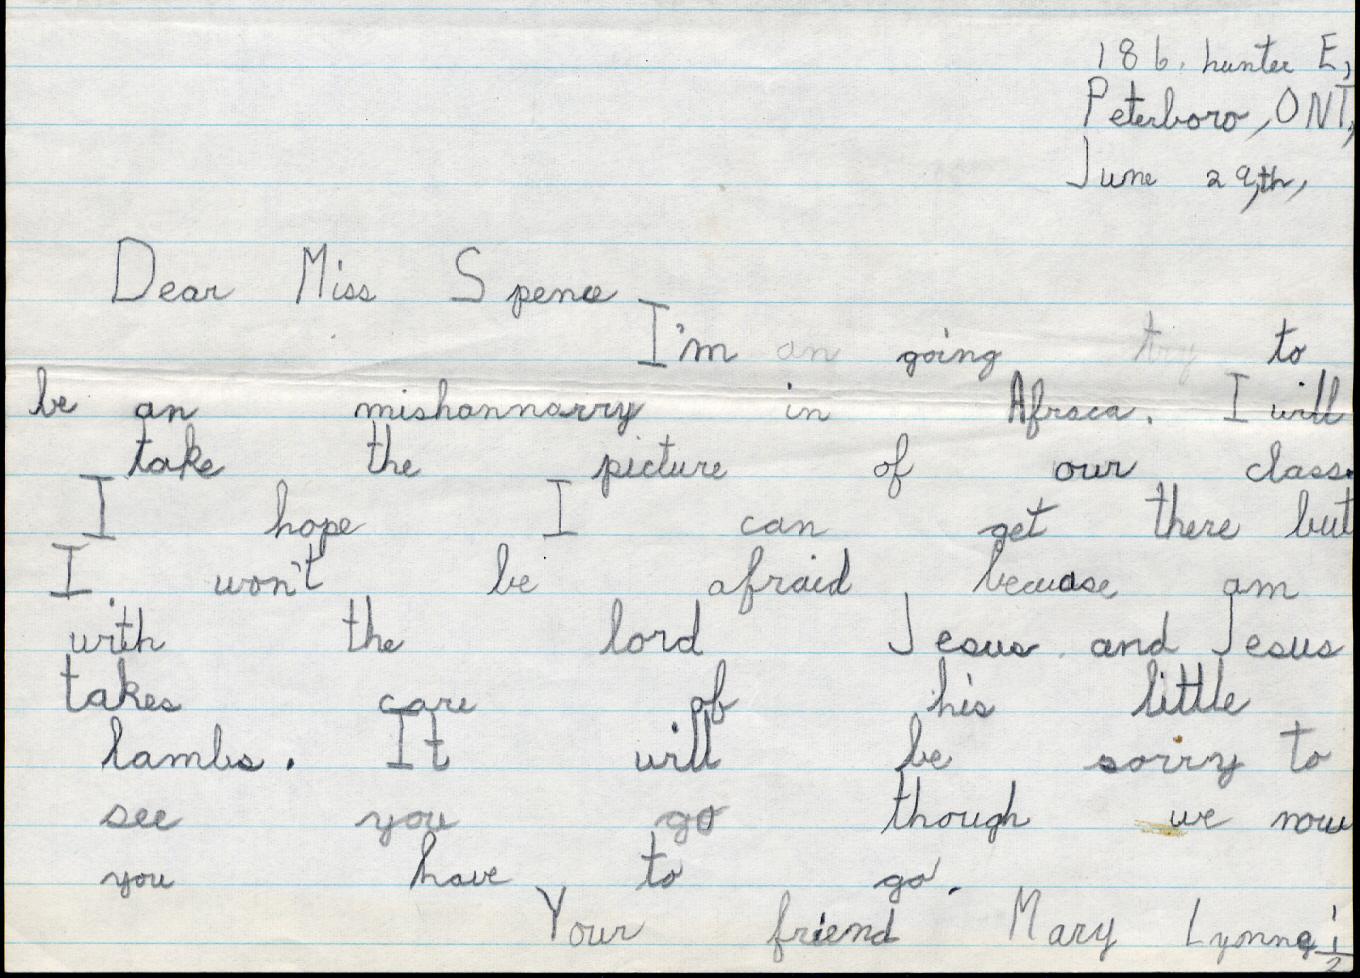 186. hunter E,
Peterboro, ONT,
June 29th,
Dear Miss Spence
I'm an going try to
be an mishonnarry in Afraca. I will
take the picture of our class.
I hope I can get there but
I won't be afraid because am
with the lord Jesus and Jesus
takes care of his little
lambs. It will be sorry to
see you go though we now
you have to go.
Your friend Mary Lynne